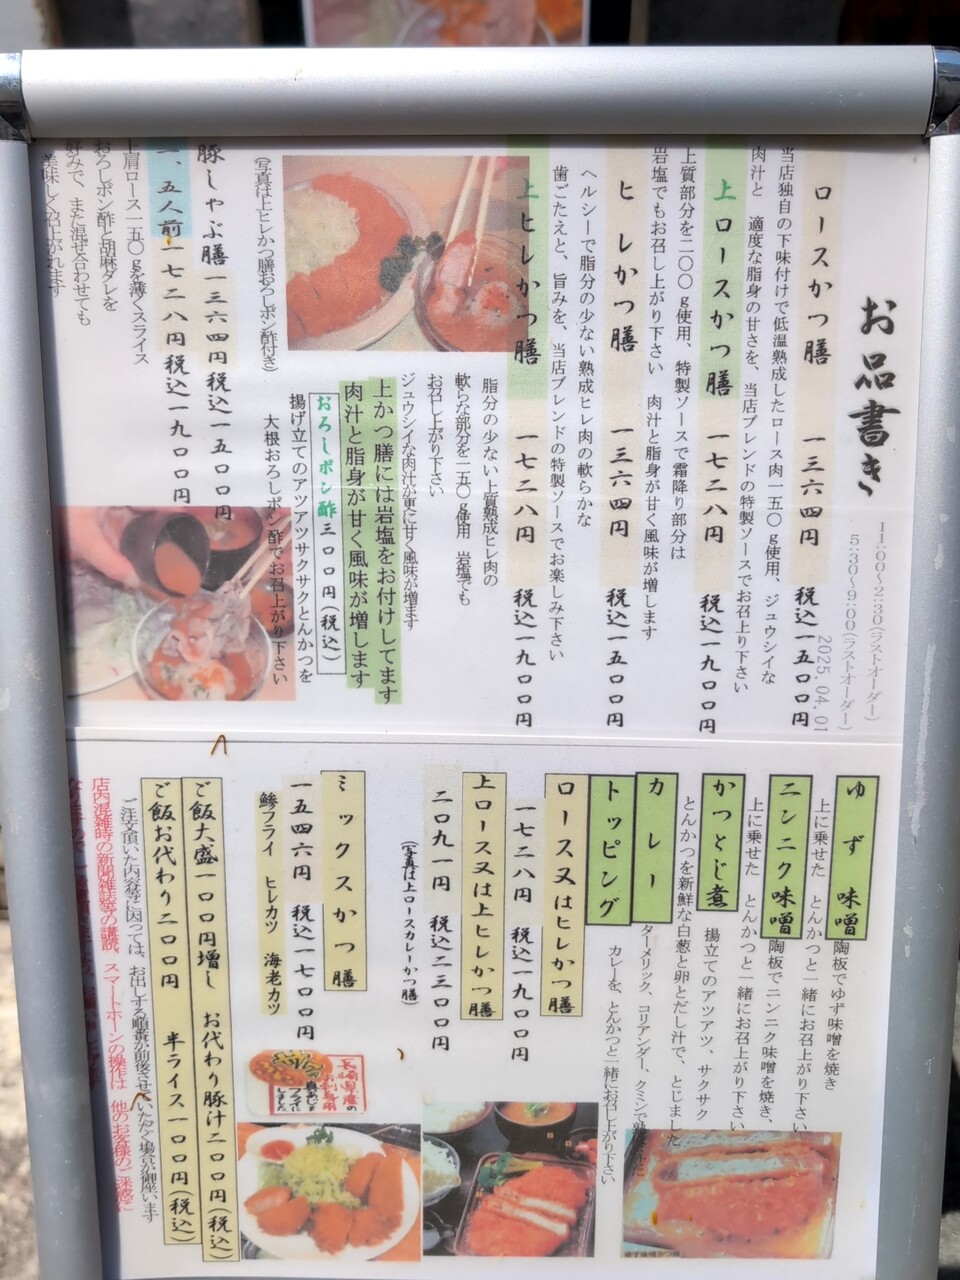 お品書き
11:00～2:30(ラストオーダー)
5:30～9:00(ラストオーダー)
2025.04.01
ロースかつ膳 一三六四円 税込一五〇〇円
当店独自の下味付けで低温熟成したロース肉一五〇g使用、ジュウシイな
肉汁と 適度な脂身の甘さを、当店ブレンドの特製ソースでお召上り下さい
上ロースかつ膳 一七二八円 税込一九〇〇円
上質部分を二〇〇g使用、特製ソースで霜降り部分は
岩塩でもお召し上がり下さい 肉汁と脂身が甘く風味が増します
ヒレかつ膳 一三六四円 税込一五〇〇円
ヘルシーで脂分の少ない熟成ヒレ肉の軟らかな
歯ごたえと、旨みを、当店ブレンドの特製ソースでお楽しみ下さい
上ヒレかつ膳 一七二八円 税込一九〇〇円
脂分の少ない上質熟成ヒレ肉の
軟らな部分を一五〇g使用 岩塩でも
お召し上がり下さい
ジュウシイな肉汁が更に甘く風味が増ます
上かつ膳には岩塩をお付けしてます
肉汁と脂身が甘く風味が増します
おろしポン酢 三〇〇円(税込)
揚げ立てのアツアツサクサクとんかつを
大根おろしポン酢でお召上がり下さい
(写真は上ヒレかつ膳おろしポン酢付き)
豚しゃぶ膳 一三六四円 税込一五〇〇円
一、五人前 一七二八円 税込一九〇〇円
上肩ロース一五〇gを薄くスライス
おろしポン酢と胡麻ダレを
好みで、また混ぜ合わせても
美味しく召上がれます
ゆず味噌 陶板でゆず味噌を焼き
上に乗せた とんかつと一緒にお召上がり下さい
ニンニク味噌 陶板でニンニク味噌を焼き、
上に乗せた とんかつと一緒にお召上がり下さい
かつとじ煮 揚立てのアツアツ、サクサク
とんかつを新鮮な白葱と卵とだし汁で、とじました
カレー ターメリック、コリアンダー、クミンで
トッピング カレーを、とんかつと一緒にお召し上がり下さい
ロース又はヒレかつ膳
一七二八円 税込一九〇〇円
上ロース又は上ヒレかつ膳
二〇九一円 税込二三〇〇円
(写真は上ロースカレーかつ膳)
ミックスかつ膳
一五四六円 税込一七〇〇円
鯵フライ ヒレカツ 海老カツ
長崎県産の
お刺身用
真あじを
フライに
しました
ご飯大盛一〇〇円増し お代わり豚汁二〇〇円(税込)
ご飯お代わり二〇〇円 半ライス一〇〇円(税込)
ご注文頂いた内容等に因っては、お出しする順番が前後させていただく場合が御座います
店内混雑時の新聞雑誌等の講読、スマートホーンの操作は 他のお客様のご迷惑に